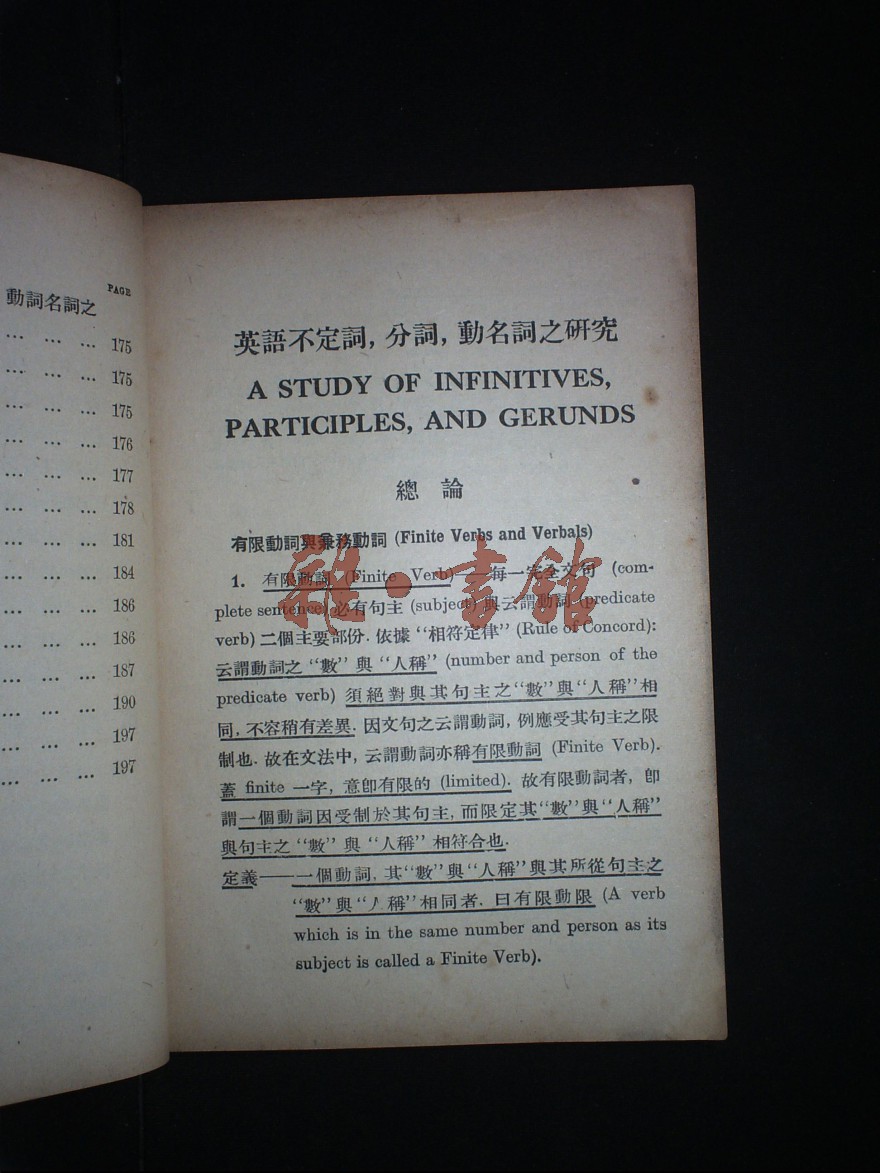 PAGE
動詞名詞之
... ... ... 175
... ... ... 175
... ... ... 175
... ... ... 176
... ... ... 177
... ... ... 178
... ... ... 181
... ... ... 184
... ... ... 186
... ... ... 186
... ... ... 187
... ... ... 190
... ... ... 197
... ... ... 197
英語不定詞, 分詞, 動名詞之研究
A STUDY OF INFINITIVES,
PARTICIPLES, AND GERUNDS
總 論
有限動詞與兼務動詞 (Finite Verbs and Verbals)
1. 有限動詞 (Finite Verb)——每一完全文句 (com-
plete sentence) 必有句主 (subject) 與云謂動詞 (predicate
verb) 二個主要部份. 依據 “相符定律” (Rule of Concord):
云謂動詞之 “數” 與 “人稱” (number and person of the
predicate verb) 須絕對與其句主之“數”與“人稱”相
同, 不容稍有差異. 因文句之云謂動詞, 例應受其句主之限
制也. 故在文法中, 云謂動詞亦稱有限動詞 (Finite Verb).
蓋 finite 一字, 意卽有限的 (limited). 故有限動詞者, 卽
謂一個動詞因受制於其句主, 而限定其“數”與“人稱”
與句主之 “數” 與 “人稱” 相符合也.
定義——一個動詞, 其“數”與“人稱”與其所從句主之
“數”與“人稱”相同者, 曰有限動限 (A verb
which is in the same number and person as its
subject is called a Finite Verb).
雜·書館